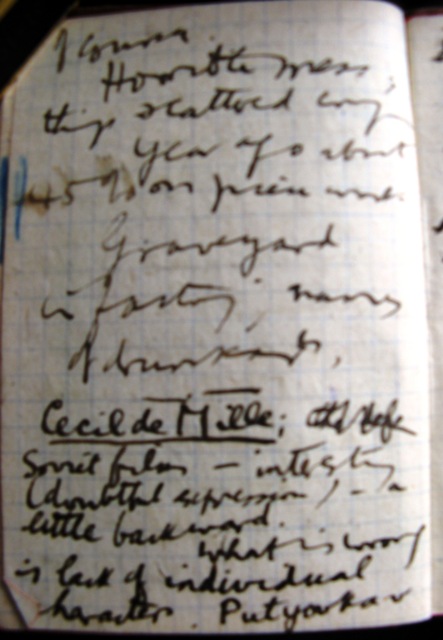 Horrible mess,
things scattered
year ago about
45% on piece work
Graveyard
in factory, names
of drunkards,
Cecil de Mille;
Soviet films — interesting
(doubtful expression) — a
little backward.
what is wrong
is lack of individual
character. Putyovka